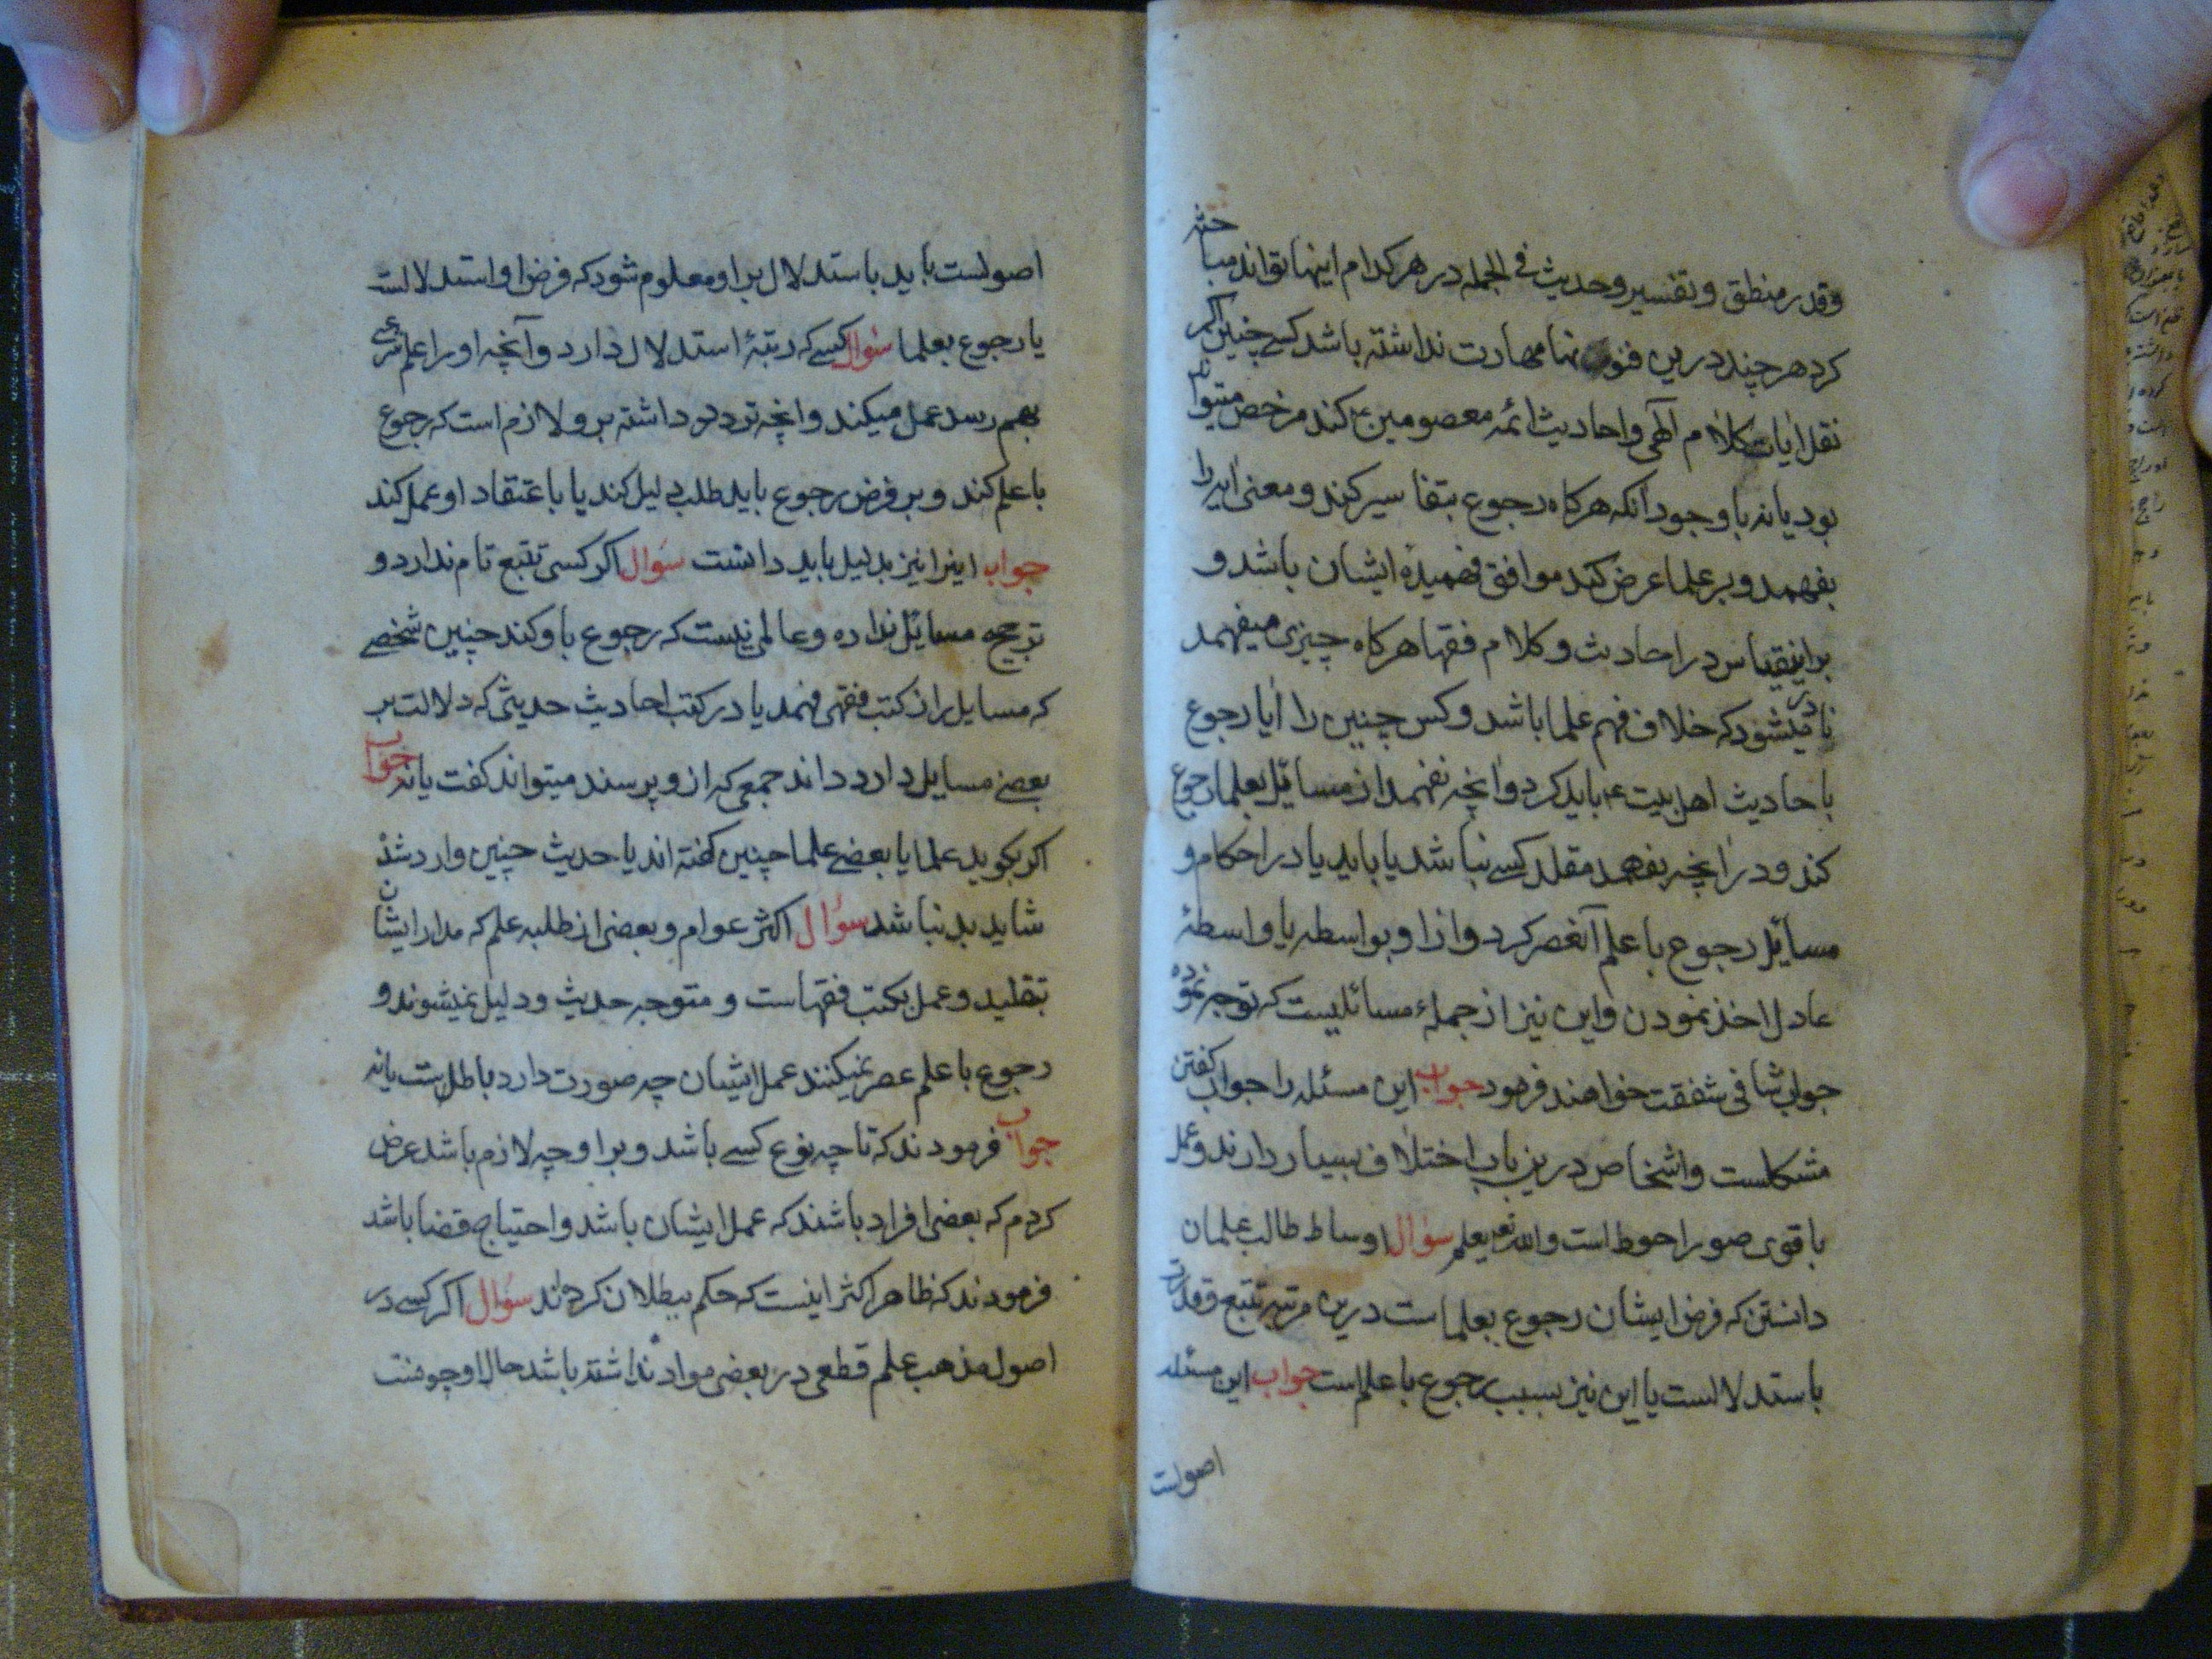 وقدر منطق و تفسیر و حدیث فی الجمله در هر کدام اینها تواند مباحثه
کرد هر چند درین فنون تنها مهارت نداشته باشد کسے چنین اکر
نقل ایات کلام آلهی و احادیث ائمه معصومین ع کند مرخص میتواند
بود یا نه با وجود آنکه هرکاه رجوع بتفاسیر کند و معنی ایه را
بفهمد و بر علما عرض کند موافق فهمیدهٔ ایشان باشد و
براینقیاس در احادیث و کلام فقها هرکاه چیزی میفهمد
نادر میشود که خلاف فهم علما باشد و کس چنین را ایا رجوع
باحادیث اهل بیت ع باید کرد و انچه نفهمد از مسائل بعلما رجوع
کند و در انچه بفهمد مقلد کسے نباشد یا باید یا در احکام و
مسائل رجوع با علم آنعصر کرد و از او بواسطه یا واسطهٔ
عادل اخذ نمودن و این نیز از جملهٔ مسائلیست که توجه نموده
جواب شافی شفقت خواهند فرمود جواب این مسئله را جواب کفتن
مشکلست و اشخاص درین باب اختلاف بسیار دارند و عمل
باقوی صور احوط است و الله تع یعلم سوال اوساط طالب علمان
دانستن که فرض ایشان رجوع بعلماست درین مرتبه تتبع و قدرت
باستدلالست یا این نیز بسبب رجوع با علم است جواب این مسئله
اصولست
اصولست باید باستدلال بر او معلوم شود که فرض او استدلالست
یا رجوع بعلما سوال کسے که رتبهٔ استدلال دارد و آنچه او را علم شرعے
بهم رسد عمل میکند و انچه تردد در داشته برو لازم است که رجوع
باعلم کند و بر فرض رجوع باید طلب دلیل کند یا باعتقاد او عمل کند
جواب اینرا نیز بدلیل باید دانست سوال اکر کسی تتبع تام ندارد و
ترجیح مسایل نداده و عالمی نیست که رجوع باو کند چنین شخصے
که مسایل را از کتب فقهی فهمد یا در کتب احادیث حدیثی که دلالت بر
بعضے مسایل دارد داند جمعی که ازو پرسند میتواند کفت یا نه جواب
اکر بکوید علما یا بعضے علما چنین کفته اند یا حدیث چنین وارد شده
شاید بد نباشد سوال اکثر عوام و بعضی از طلبه علم که مدار ایشان
بتقلید و عمل بکتب فقهاست و متوجه حدیث و دلیل نمیشوند و
رجوع با علم عصر نمیکنند عمل ایشان چه صورت دارد باطل است یا نه
جواب فرمودند که تا چه نوع کسے باشد و بر او چه لازم باشد عرض
کردم که بعضی افراد باشند که عمل ایشان باشد و احتیاج قضا باشد
فرمودند که ظاهر اکثر اینست که حکم ببطلان کرده اند سوال اکر کسے در
اصول مذهب علم قطعی در بعضی مواد نداشته باشد حال او چونست